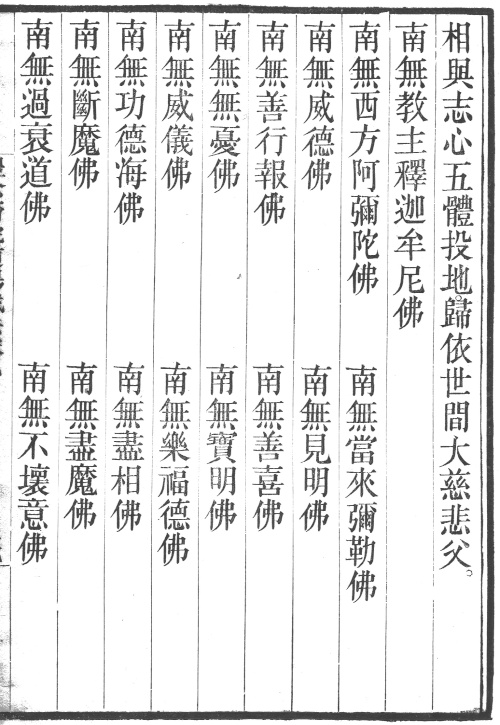 相與志心五體投地。歸依世間大慈悲父。
南無教主釋迦牟尼佛
南無西方阿彌陀佛　南無當來彌勒佛
南無威德佛　南無見明佛
南無善行報佛　南無善喜佛
南無無憂佛　南無寶明佛
南無威儀佛　南無樂福德佛
南無功德海佛　南無盡相佛
南無斷魔佛　南無盡魔佛
南無過衰道佛　南無不壞意佛